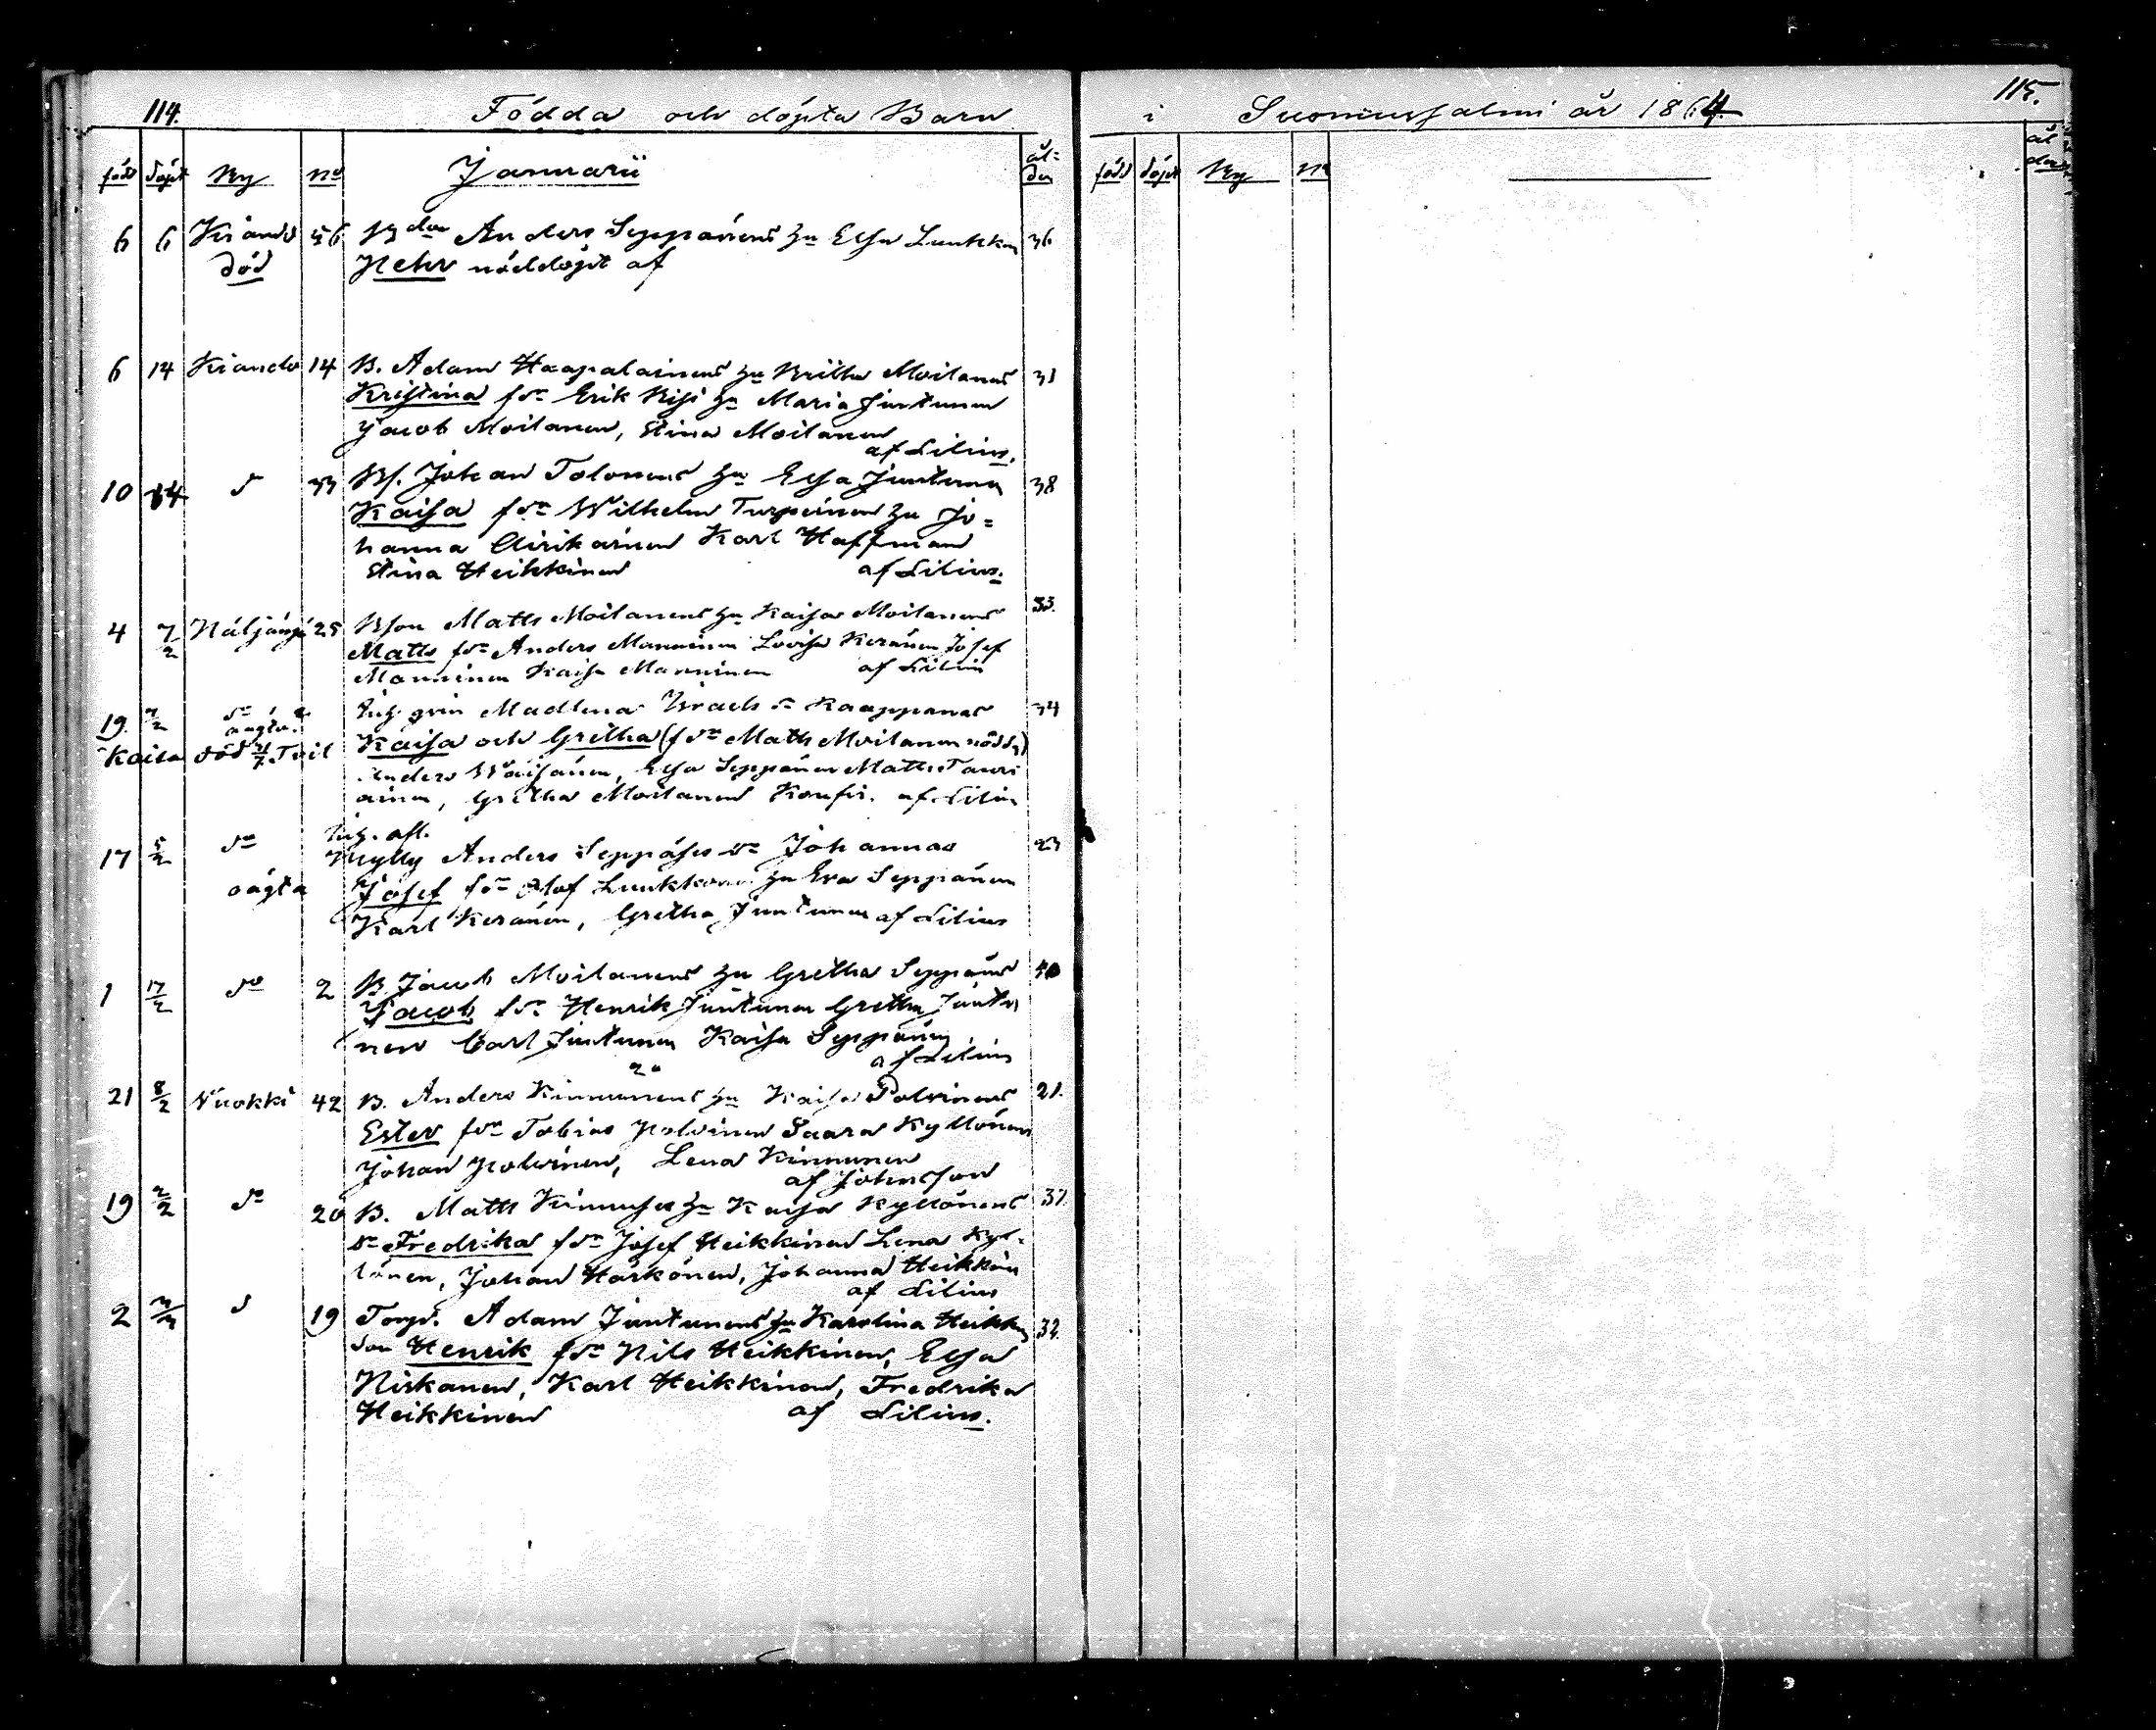 114.
Födda och döpta Barn
i Suomussalmi år 1864.
115.
född döpt By No Januarii ål=der
född döpt By No ålder
6 6 Kiando 56 Bdn Anders Seppänens hu Elsa Lukkn 36
död Pehr nöddöpt af
6 14 Kiando 14 B. Adam Haapalainens hu Britha Moilanens
Kristina fdr Erik Kisi hu Maria Juntunen
Jacob Moilanen, Stina Moilanen
af Lilius.
10 14 d 33 Bs. Johan Tolonens hu Elsa Juntunen 38
Kaisa fdr Wilhelm Turpeinen hu Jo=
hanna Airikainen Karl Haffman
Stina Heikkinen af Lilius.
4 7/2 Näljänge 25 Bson Matts Moilanens hu Kaisa Moilanens 33.
Matts fdr Anders Manninen Lovisa Keränen Josef
Manninen Kaisa Manninen af Lilius
19. 7/2 do oägta Inh. qvin Madlena Israels dr Kaappanas 34
Kaisa död Tvil Kaisa och Gretha (fdr Matts Moilanen nödd)
Anders Wäisänen, Elsa Seppänen Matts Tauri
ainen, Gretha Moilanen Konfir. af Lilius
Inh. afl.
17 5/2 do Mylly Anders Seppäses dr Johannas 23
oägta Josef fdr Olof Luukkonen hu Eva Seppänen
Karl Keränen, Gretha Juntunen af Lilius
1 17/2 do 2 B. Jacob Moilanens hu Gretha Seppäns 40
Jacob fdr Henrik Juntunen Gretha Juntu
nen Carl Juntunen Kaisa Seppänen
af Lilius
21 8/2 Vuokki 42 B. Anders Kinnunens hu Kaisa Polvinens 21.
Ester fdr Tobias Polvinen Saara Kyllönen
Johan Polvinen, Lena Kinnunen
af Johnsson
19 2/2 do 20 B. Matts Kinnuses hu Kaisa Kyllönens 37.
dr Fredrika fdr Josef Heikkinen Lena Kyl-
lönen, Johan Härkönen, Johanna Heikkin
af Lilius
2 d 19 Torp. Adam Juntunens hu Karolina Heikkn 32.
Son Henrik fdr Nils Heikkinen, Elsa
Niskanen, Karl Heikkinen, Fredrika
Heikkinen af Lilius.